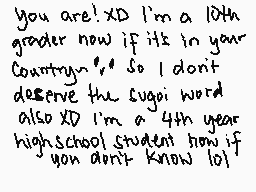 you are! XD I'm a 10th
grader now if its in your
country ",",  so I don't
deserve the sugoi word
also XD I'm a 4th year
highschool student now if
you don't know lol